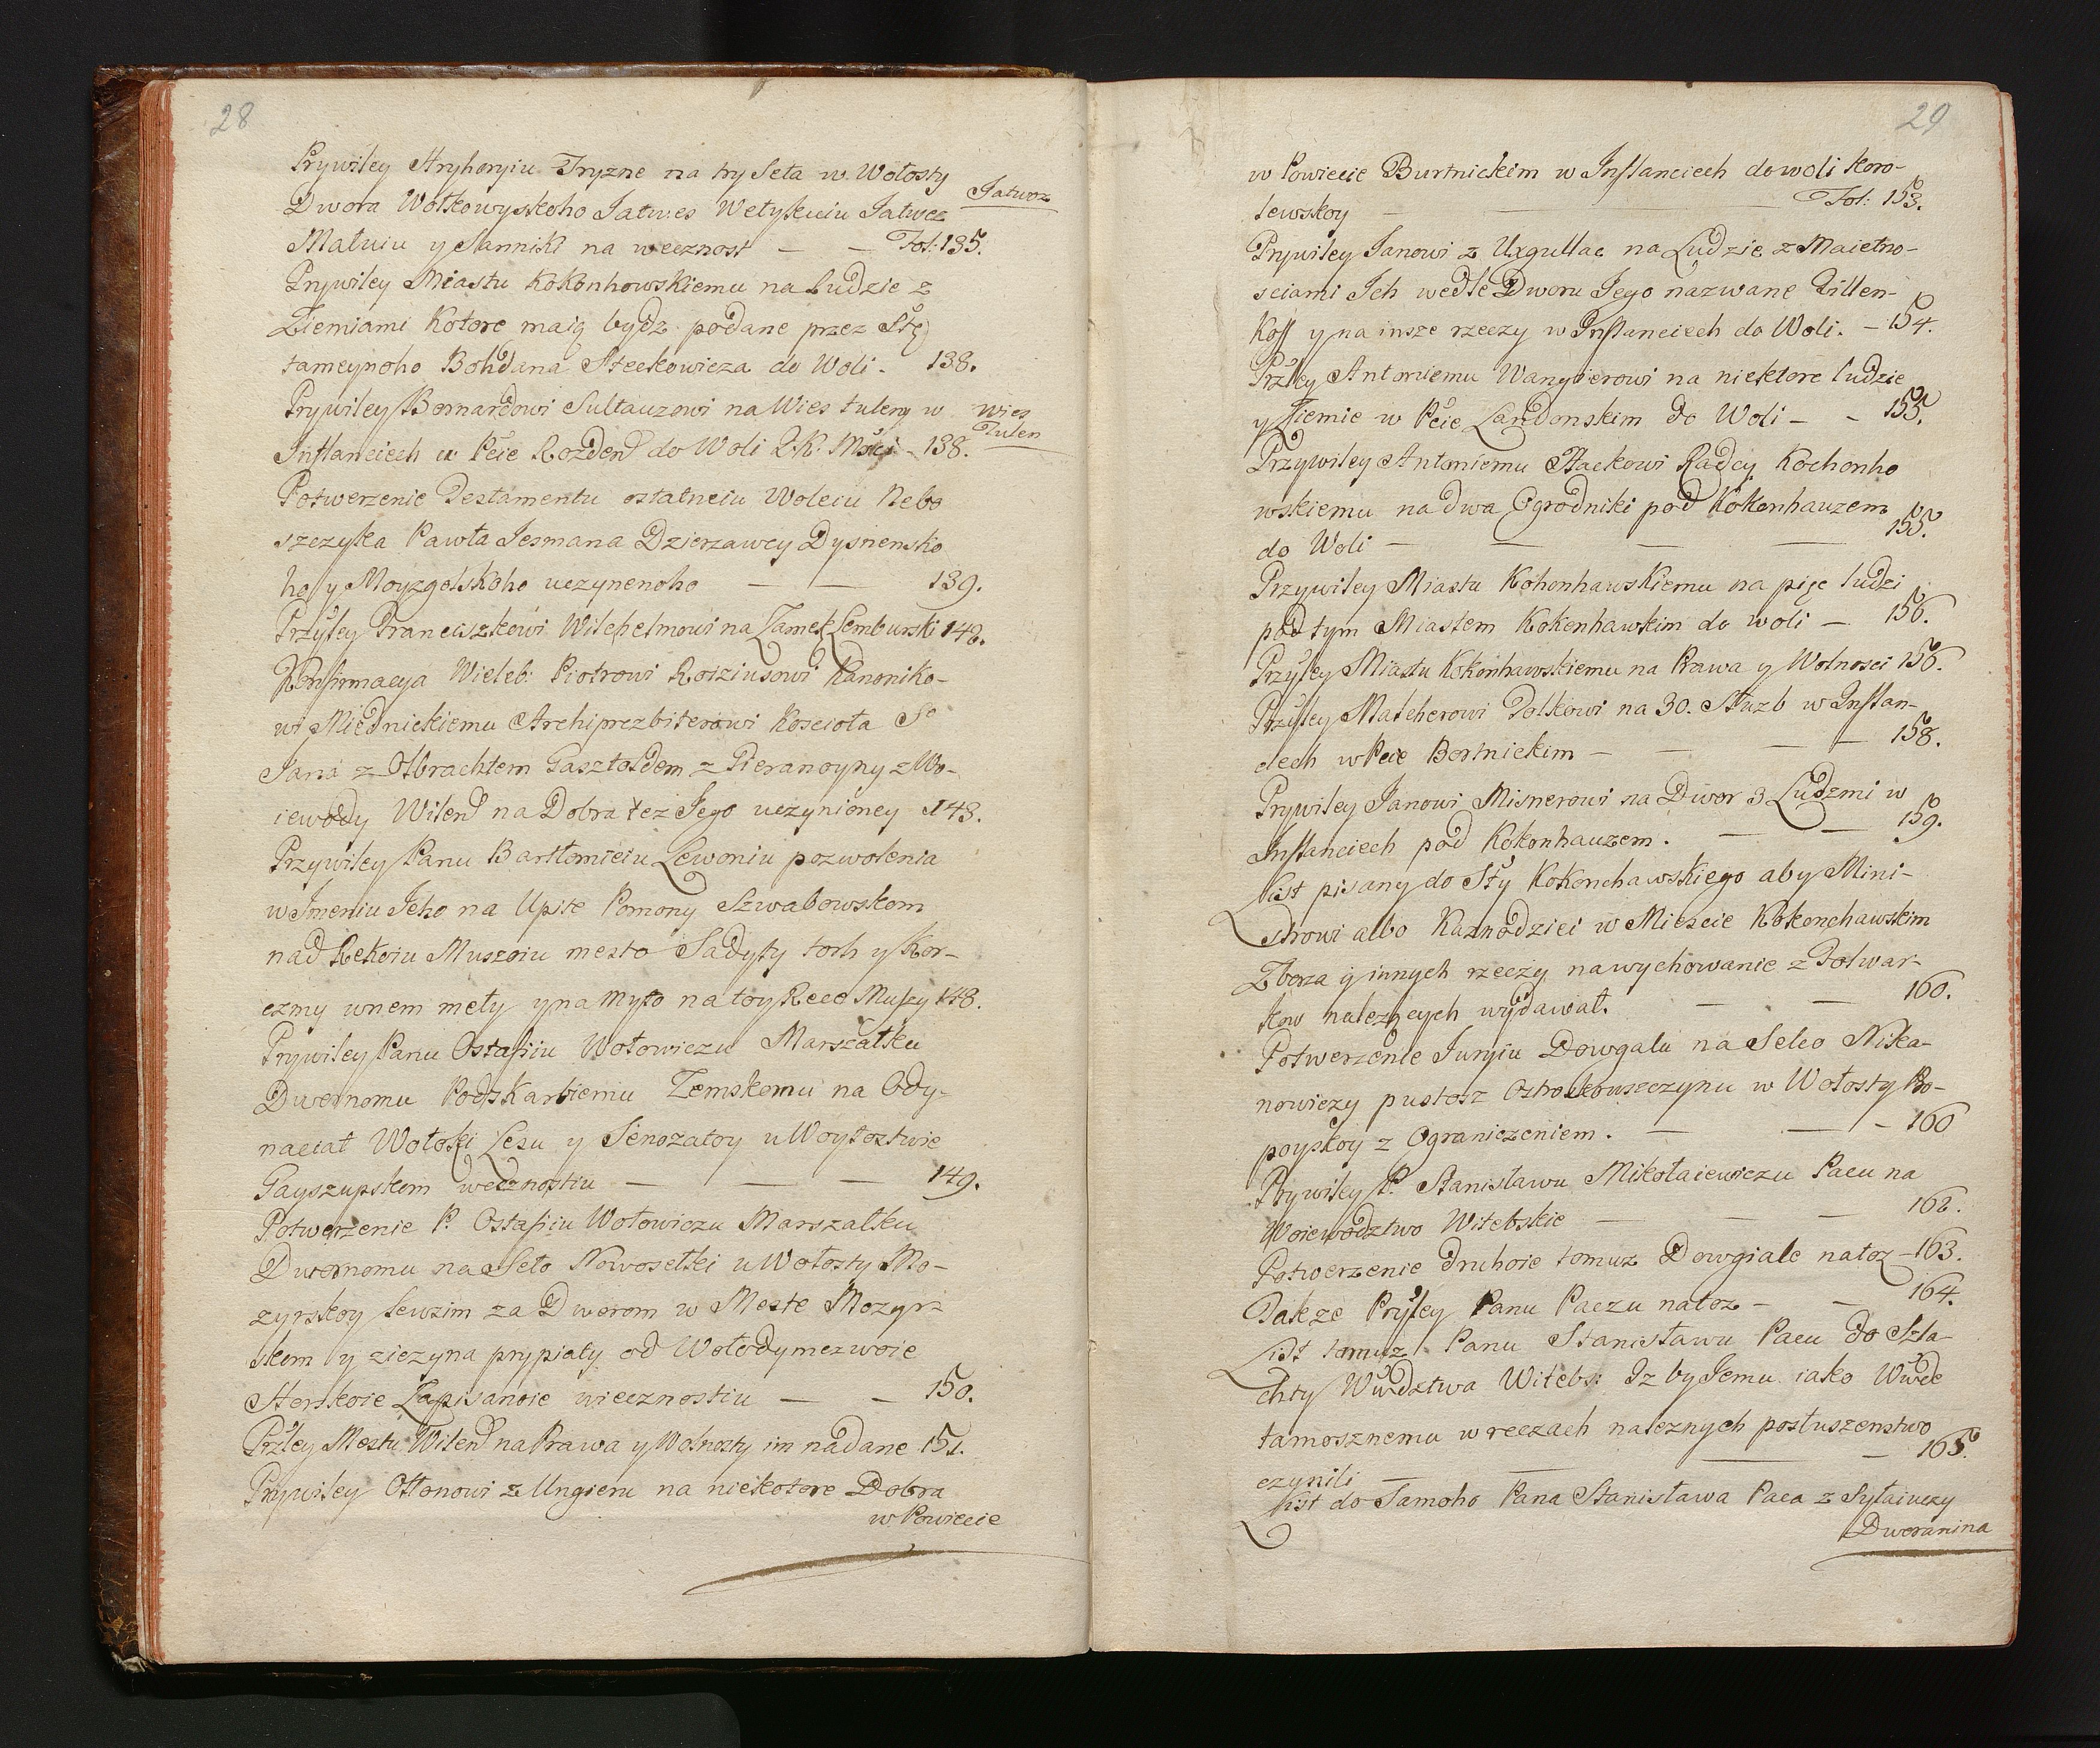 28
Prywiley Hryhoryiu Tryzne na try Seła w Wołosty
Dwora Wołkowyskoho Jatwes Wełykuiu Jatwez
Jatwoz
Małuiu y Sannikł na wecznost — — Fol: 135.
Prywiley Miastu Kokonhowskiemu na ludzie z
Ziemiami Kotore maią bydz podane przez Stę
tameynoho Bohdana Steckowicza do Woli - 138.
Prywiley Bernardowi Sultauzowi na Wies tuleny w
wies Tulen
Inflanciech w Pćie Rozden do Woli J.K. Mści - 138.
Potwerzenie Testamentu ostatneiu Woleiu Nebo
szczyka Pawła Jesmana Dzierzawcy Dysnensko
ho y Moyzgolskoho uczynenoho — — 139.
Przyley Franciszkowi Wilchelmowi na Zamek Lemburski 142.
Konfirmacya Wieleb: Piotrowi Roiziusowi Kanoniko-
wi Miednickiemu Archiprezbiterowi Koscioła So
Jana z Olbrachtem Gasztołdem z Pieranoyny z Wo-
iewody Wilen na Dobra też Jego uczynioney 143.
Przywiley Panu Bartłomieiu Lewoniu pozwolenia
w Imeniu Jeho na Upite Pomony Szwabowskom
nad Rekoiu Muszoiu mesto Sadyty torh y Kor-
czmy wnem mety y na Myto na toy Rece Muszy 148.
Prywiley Panu Ostafiiu Wołowiczu Marszałku
Dwornomu Podskarbiemu Zemskomu na Ody-
naciat Wołok Lesu y Senozatoy u Woytostwie
Gayszupskom wecznostiu — — — 149.
Potwerzenie P. Ostafiiu Wołowiczu Marszałku
Dwornomu na Seło Nowosełki u Wołosty Mo-
zyrskoy Sewzim za Dworom w Meste Mozyr-
skom y ziezyna prypiaty od Wołodymerwoie
Horskoie Zapisanoie wiecznostiu — — 150.
Przley Mestu Wilen na Prawa y Wolnosty im nadane 151.
Prywiley Ottonowi z Ungiern na niekotore Dobra
w Powiecie
29
w Powiecie Burtnickim w Inflanciech do woli Koro-
lewskoy — — Fol: 153.
Prywiley Janowi z Uxgullac na Ludzie z Maietno-
sciami Ich wedle Dworu Jego nazwane Zitten-
Koff y na insze rzeczy w Inflanciech do Woli. - 154.
Przley Antoniemu Wangierowi na niektore ludzie
y Ziemie w Pćie Landonskim do Woli - - 155.
Przywiley Antoniemu Stackowi Radcy Kochonho
wskiemu na dwa Ogrodniki pod Kokonhauzem
do Woli — — — — 155.
Przywiley Miastu Kohonhawskiemu na pięc ludzi
pod tym Miastem Kokenhawskim do woli - 156.
Przyley Miastu Kokonhawskiemu na Prawa y Wolnosci 156.
Przyley Malcherowi Tolkowi na 30. Służb w Inflan-
ciech w Pcie Bortnickim — — — — 158.
Prywiley Janowi Misnerowi na Dwor 3 Ludzmi w
Inflanciech pod Kokonhauzem. — — 159.
List pisany do Sty Kokonchawskiego aby Mini-
strowi albo Kaznodziei w Miescie Kokonchawskim
Zboza y innych rzeczy na wychowanie z Folwar-
kow nalezących wydawał. — — 160.
Potwerzenie Juryiu Dowgału na Selco Nika-
nowiczy pustosz Ostrokowszczynu w Wołosty Po-
poyskoy z Ograniczeniem. — — - 160
Prywiley P. Stanisławu Mikołaiewiczu Pacu na
Woiewodztwo Witebskie — — — 162.
Potwerzenie druhoie tomuz Dowgiale natoz - 163.
Takze Pryley Panu Paczu natoz — — 164.
List tomuz Panu Stanisławu Pacu do Szla-
chty Wwdztwa Witebs: Iz by Jemu iako Wwde
tamosznemu w reczach nalezných posłuszenstwo
czynili — — — — 165.
List do Samoho Pana Stanisława Paca z Sytaiuczy
Dworanina